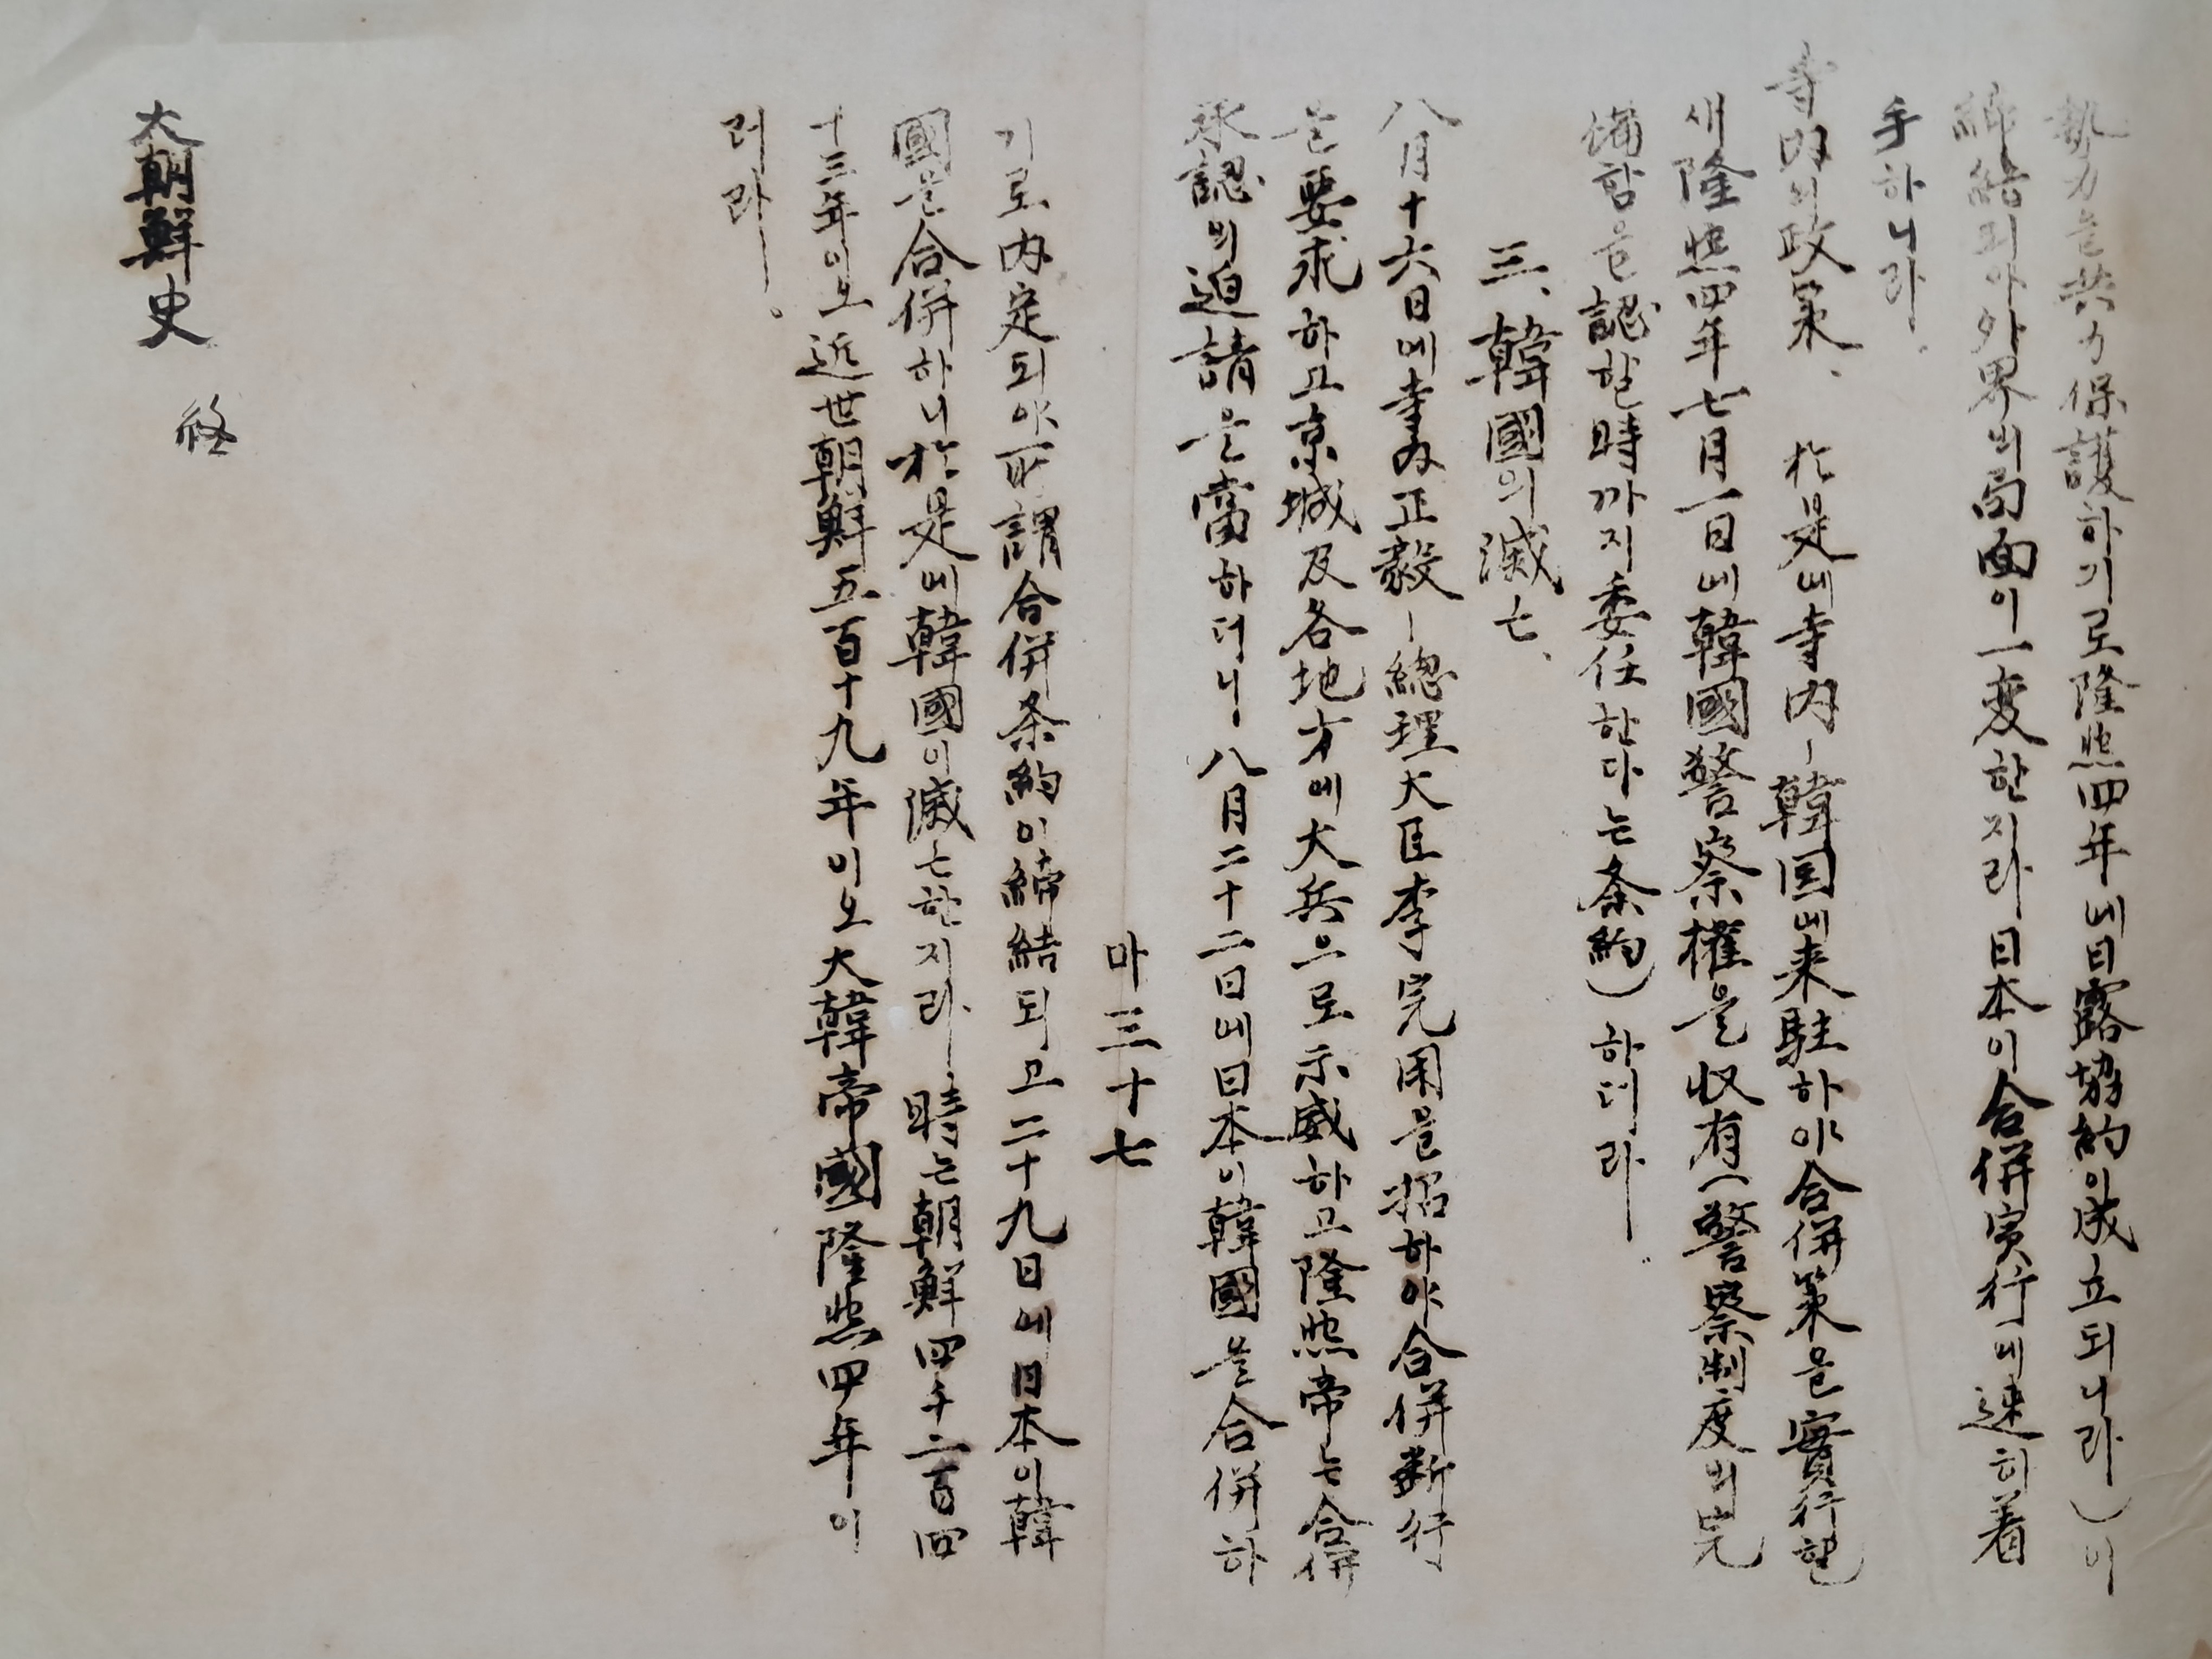 勢力을共力保護하기로隆熙四年에日露協約이成立되니라)이
締結되야外界의局面이一変한지라日本이合併実行에速히着
手하니라.
寺内의政策、 於是에寺内ㅣ韓国에来駐하야合併策을實行할
새隆熙四年七月一日에韓國警察權을収有(警察制度의完
備함을認할時까지委任한다는条約)하더라.
三、韓國의滅亡、
八月十六日에寺内正毅ㅣ總理大臣李完用을招하야合併断行
을要求하고京城及各地方에大兵으로示威하고隆熙帝는合併
承認의迫請을當하더니八月二十二日에日本이韓國을合併하
마三十七
기로内定되야所謂合併条約이締結되고二十九日에日本이韓
國을合併하니於是에韓國이滅亡한지라.時는朝鮮四千二百四
十三年이오近世朝鮮五百十九年이오大韓帝國隆熙四年이
러라.
大朝鮮史 終